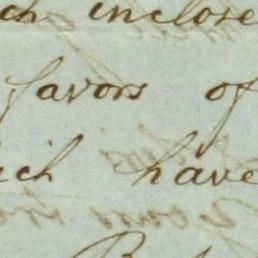 ch inclose
favors of
ich have